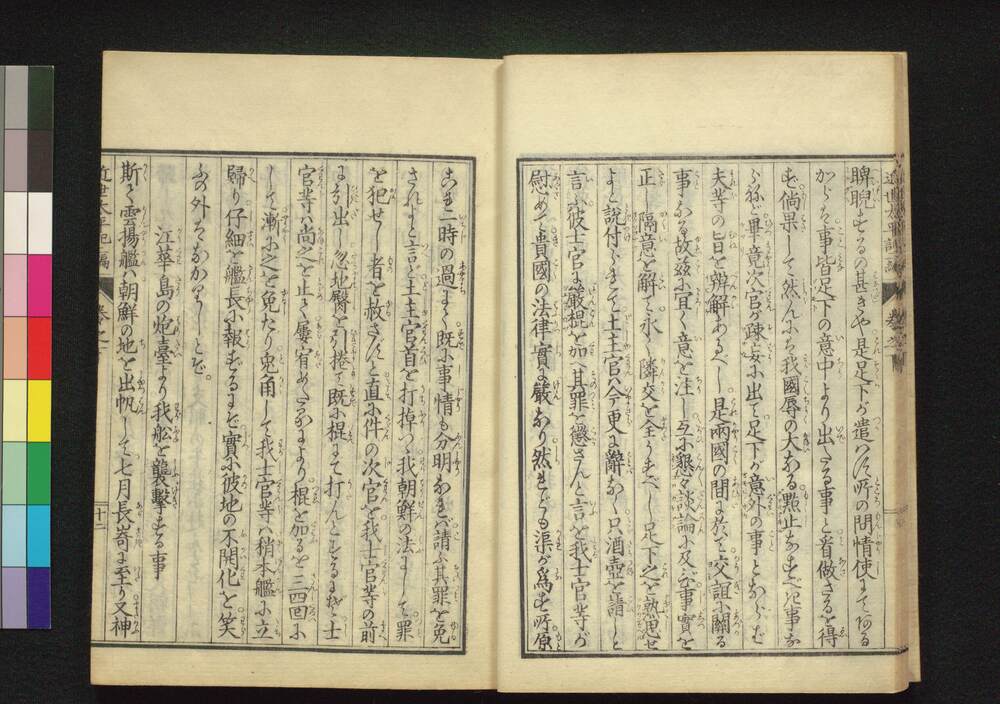 睥睨せるの甚きや是足下が遣ハス所の問情使にてある
からそ事皆足下の意中より出たる事と看做さるを得
ず倘果して然らんにハ我國辱の大なる黙止なすべき事な
らねど畢竟次官が疎妄に出て足下が意外の事とならバ
夫等の旨を辨解あるべし是両國の間に於て交誼に關る
事なる故茲に宜く意を注し互に懇々談論に及ぶ事實を
正し隔意を解て永く隣交を全うすべし足下之を熟思せ
よと説付らるゝに士官ハ今更に辭なく只酒壺を請しと
言ふ彼士官に嚴棍を加へ其罪を懲さんと言を我士官等が
慰めて貴國の法律實に嚴なり然れども渠が為す所原
これ一時の過にして既に事情も分明なれバ請ふ其罪を免
されよと言ど士官首を打掉つゝ我朝鮮の法として罪
を犯せし者を赦さんと直に件の次官を我士官等の前
に引出し忽地臀を引捲て既に棍にて打んとするにぞ士
官等ハ尚之を止て屡宥めたるにより棍を加るを三四回に
して漸に之を免たり兎角して我士官等ハ稍本艦に立
歸り仔細を艦長に報ずるにぞ實に彼地の不開化を笑
ふの外ぞなかりしとぞ
江華島の炮臺より我舩を襲擊する事
斯て雲揚艦ハ朝鮮の地を出帆して七月長崎に至り又神
近世太平記二編
巻之二
十二